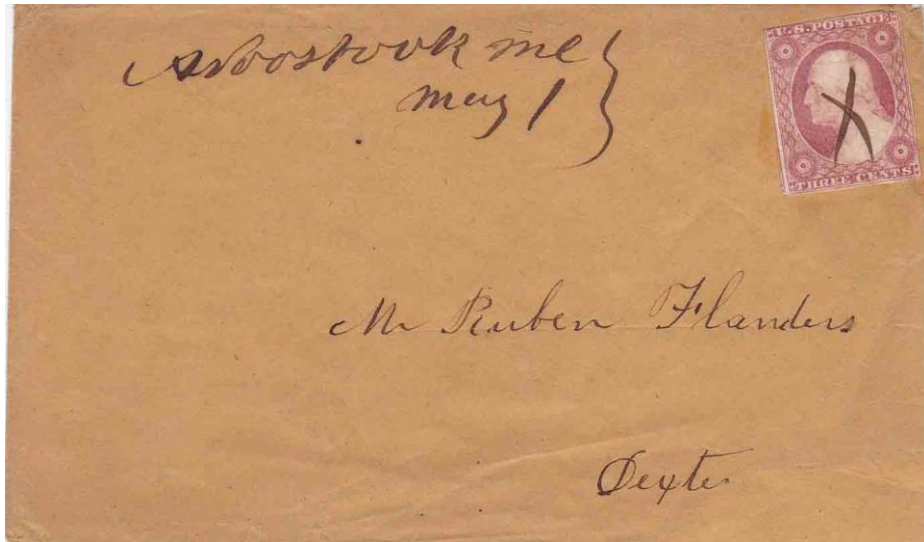 Aroostook Me
May 1
U.S. POSTAGE
X
THREE CENTS
Mr Ruben Flanders
Dexter